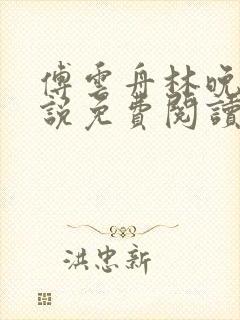 傅雲舟林晚
說免費閱讀
洪忠新